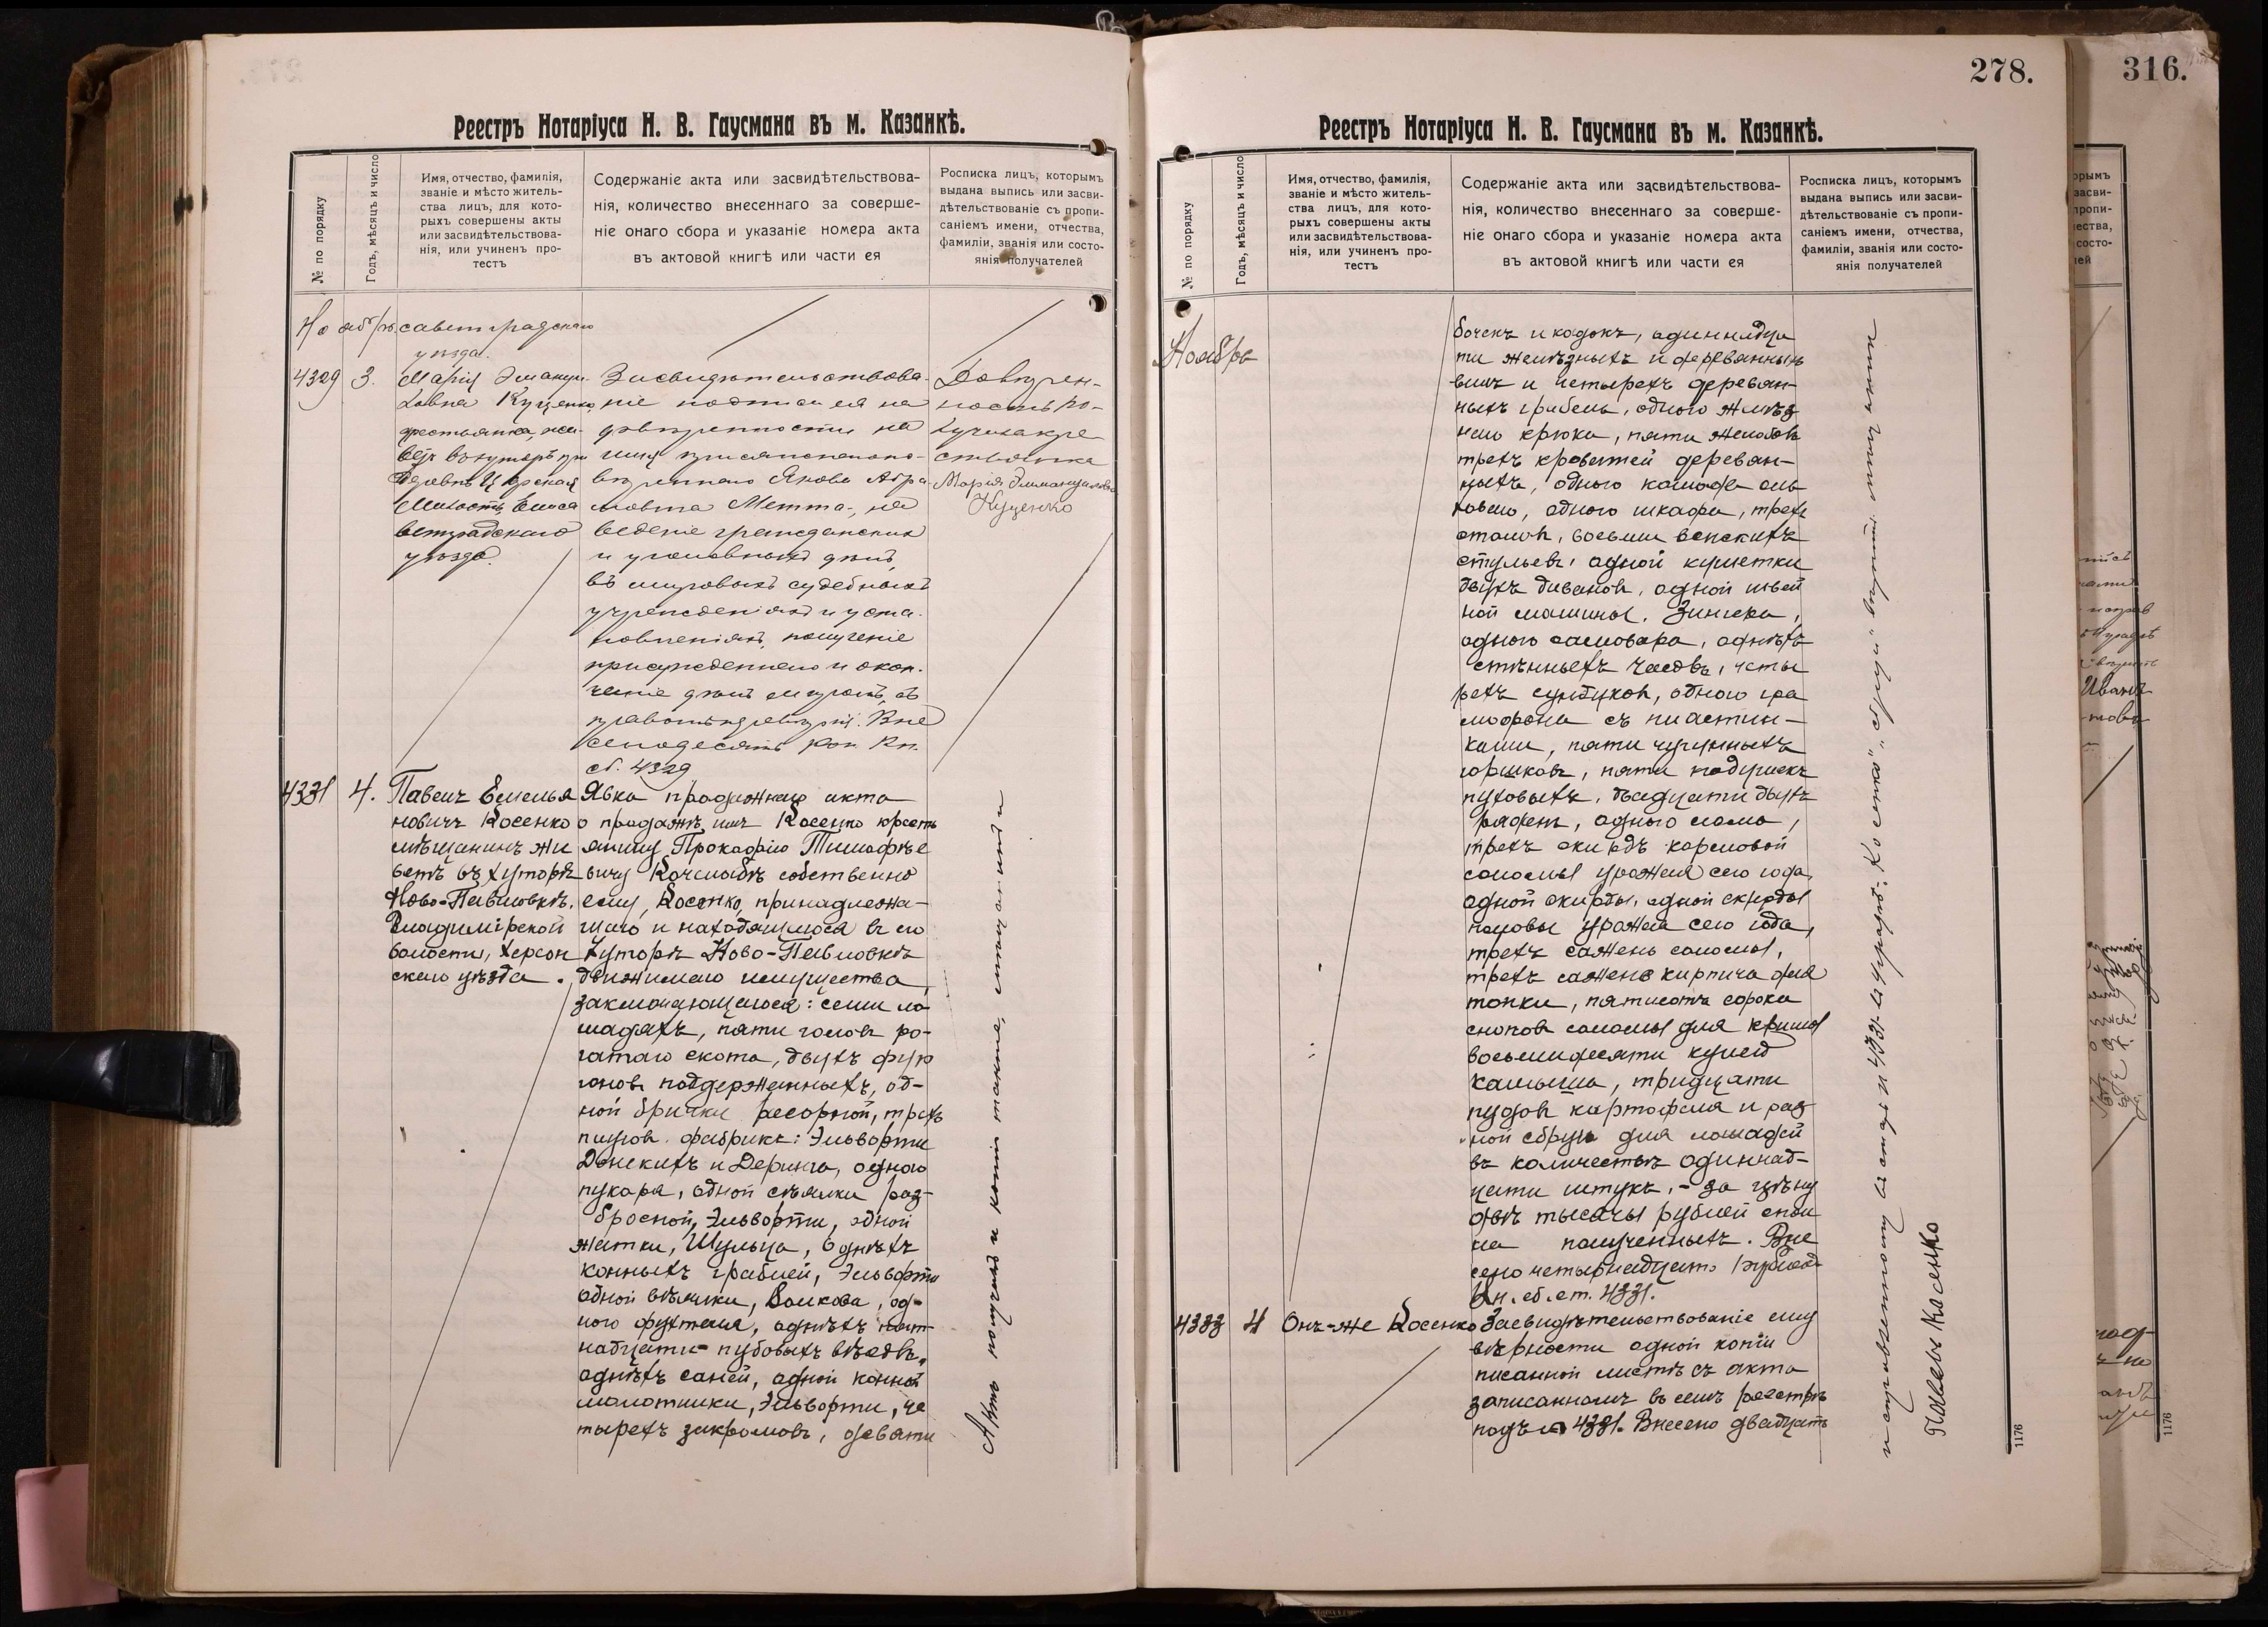 Реестръ Нотаріуса Н. В. Гаусмана въ м. Казанкѣ.
№ по порядку
Годъ, мѣсяцъ и число
Имя, отчество, фамилія,
званіе и мѣсто житель-
ства лицъ, для кото-
рыхъ совершены акты
или засвидѣтельствова-
нія, или учиненъ про-
тестъ
Содержаніе акта или засвидѣтельствова-
нія, количество внесеннаго за соверше-
ніе онаго сбора и указаніе номера акта
въ актовой книгѣ или части ея
Росписка лицъ, которымъ
выдана выпись или засви-
дѣтельствованіе съ пропи-
саніемъ имени, отчества,
фамиліи, званія или состо-
янія получателей
саветградскаго
уѣзда.
4329
3.
Марія Эмануи-
ловна Куценко,
крестьянка, жи-
ветъ въ хуторѣ при
деревнѣ Царская
Милость, Елиса
ветградскаго
уѣзда.
Засвидѣтельствова-
ніе подписи ея на
довѣренности на
имя присяжнаго по-
вѣреннаго Якова Абра
мовича Метта, на
веденіе гражданскихъ
и уголовныхъ дѣлъ,
въ мировыхъ судебныхъ
учрежденіяхъ и уста-
новленіяхъ, полученіе
присужденнаго и окон-
чаніе дѣлъ миромъ, съ
правомъ передовѣрія. Вне
семьдесятъ коп. Кн.
сб. 4329
Довѣрен-
ность по-
лучила кре
стьянка
Марія Эммануиловна
Куценко
4331
4.
Павелъ Емелья
новичъ Косенко
мѣщанинъ жи
ветъ въ хуторѣ
Ново-Павловкѣ,
Владимірской
волости, Херсон
скаго уѣзда.
Явка продажнаго акта
о продажѣ имъ Косенко кресть
янину Прокофію Тимофѣе
вичу Кочемабѣ собственно
ему, Косенко, принадлежа-
щаго и находящагося въ его
хуторѣ Ново-Павловкѣ
движимаго имущества,
заключающагося: семи ло
шадяхъ, пяти головъ ро-
гатаго скота, двухъ фур
гоновъ подержанныхъ, од-
ной брички рессорной, трехъ
плуговъ фабрикъ: Эльворти
Донскихъ и Деринга, одного
пукаря, одной сѣялки раз-
бросной, Эльворти, одной
жатки, Шульца, однѣхъ
конныхъ граблей, Эльворти
одной вѣялки, Волкова, од-
ного фухтеля, однѣхъ пят-
надцати-пудовыхъ вѣсовъ,
однѣхъ саней, одной конной
молотилки, Эльворти, че
тырехъ закромовъ, девяти
Актъ получилъ и копію также,
278.
Реестръ Нотаріуса Н. В. Гаусмана въ м. Казанкѣ.
№ по порядку
Годъ, мѣсяцъ и число
Имя, отчество, фамилія,
званіе и мѣсто житель-
ства лицъ, для кото-
рыхъ совершены акты
или засвидѣтельствова-
нія, или учиненъ про-
тестъ
Содержаніе акта или засвидѣтельствова-
нія, количество внесеннаго за соверше-
ніе онаго сбора и указаніе номера акта
въ актовой книгѣ или части ея
Росписка лицъ, которымъ
выдана выпись или засви-
дѣтельствованіе съ пропи-
саніемъ имени, отчества,
фамиліи, званія или состо-
янія получателей
Ноябрь
бочекъ и кадокъ, одиннадца
ти желѣзныхъ и деревянныхъ
вилъ и четырехъ деревян-
ныхъ грабель, одного желѣз
наго крюка, пяти
трехъ кроватей деревян-
ныхъ, одного комода
одного шкафа, трехъ
столовъ, восьми вѣнскихъ
стульевъ, одной кушетки
двухъ дивановъ, одной швей
ной машины, Зингера,
одного самовара, однѣхъ
стѣнныхъ часовъ, четы
рехъ сундуковъ, одного гра
мофона съ пластин-
ками, пяти чугунныхъ
горшковъ, пяти подушекъ
пуховыхъ, двадцати двухъ
одного лома,
трехъ скирдъ кормовой
соломы урожая сего года,
одной скирды, одной скирды
половы урожая сего года,
трехъ сажень соломы,
трехъ сажень кирпича для
топки, пятисотъ сорока
сноповъ соломы для крыши
восьмидесяти кулей
камыша, тридцати
пудовъ картофеля и раз
ной сбруи для лошадей
въ количествѣ одиннад-
цати штукъ, - за цѣну
двѣ тысячи рублей спол
на полученныхъ. Вне
сено четырнадцать рублей
Кн. сб. ст. 4331.
4333
4
Онъ-же Косенко
Засвидѣтельствованіе ему
вѣрности одной копіи
писанной листѣ съ акта
записаннаго въ семъ реестрѣ
подъ № 4331. Внесено двадцать
Павелъ Косенко
1176
316.
1176